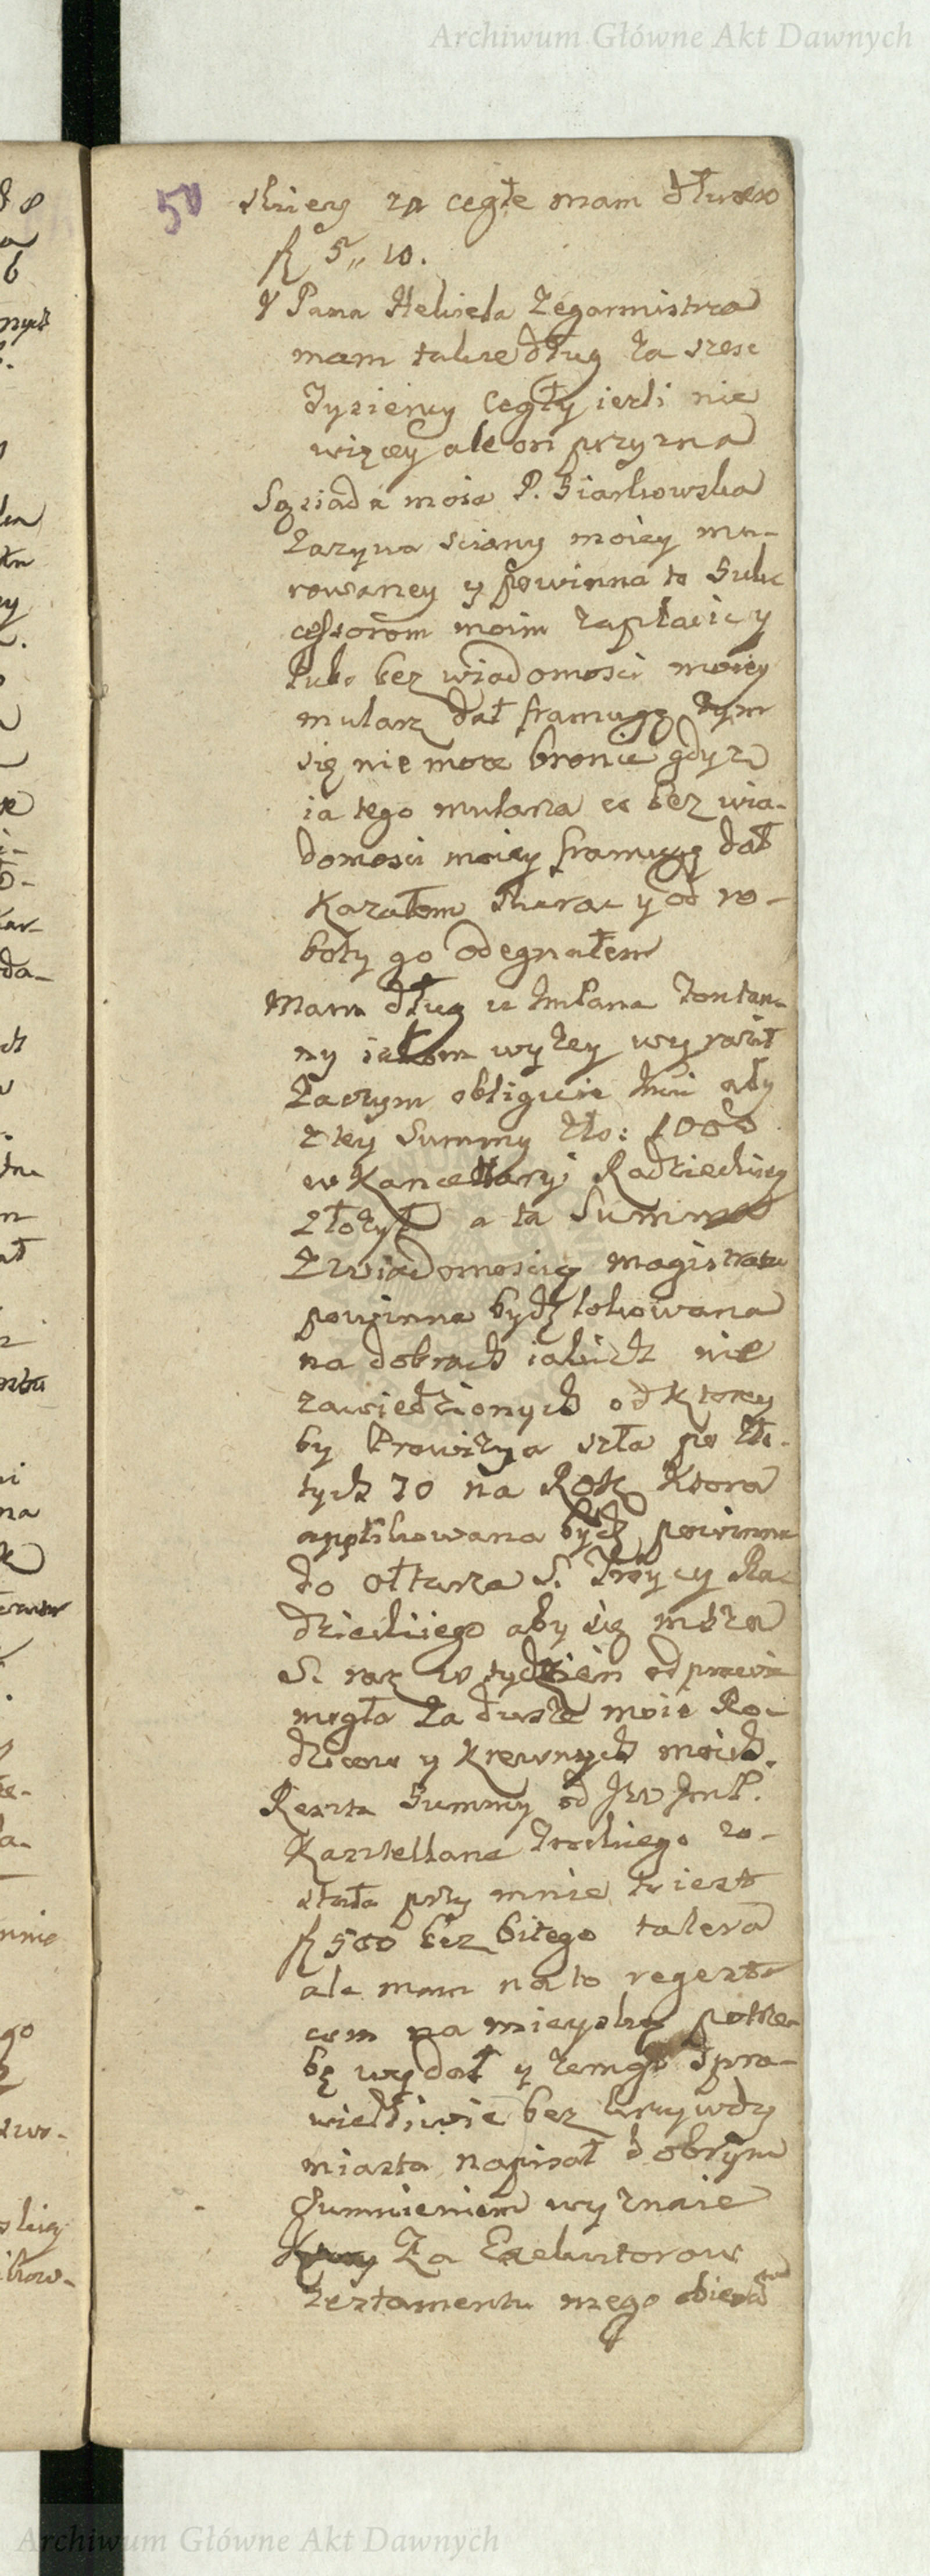 Archiwum Główne Akt Dawnych
50
skiey za cegłe mam
fl 5,, 10.
Pana Zegarmistrza
mam takze dług za szesc
Tysiency Cegły iezli nie
więcey ale on przyzna
Sąsiada moia P. Siarkowska
zazywa sciany moiey mu-
rowaney y powinna to Suk
cessorom moim zapłacic y
lubo bez wiadomosci moiey
mularz dał framugę tym
się nie moze bronic gdyz
ia tego mularza co bez wia-
domosci moiey framugę dał
Kazałem y od ro-
boty go odegnałem
Mam dług u ImPana Fontan-
ny iakom wyzey wyraził
Zaczym obliguie Imci aby
z tey Summy Zło: 1000
w Kancellaryi Radzieckiey
złozył a ta Summa
Z wiadomoscią magistratu
powinna bydz lokowana
na dobrach iakich nie
zawiedzionych od Ktorey
by Prowizya szła po Zło-
tych 70 na Rok Ktora
applikowana bydz powinna
do ołtarza S. Troycy Ra-
dzieckiego aby się msza
S. raz w tydzien odprawia
mogła Za dusze moie Ro-
dzicow y Krewnych moich.
Reszta Summy od JW ImP.
Kasztellana Trockiego zo-
stała przy mnie to iest
fl 500 bez bitego talera
ale mam na to regestr
com na mieyską potrze-
bę wydał y zem go spra-
wiedliwie bez krzywdy
miasta napisał dobrym
Sumnieniem wyznaie
Za Exekutorow
Testamentu mego
Archiwum Główne Akt Dawnych